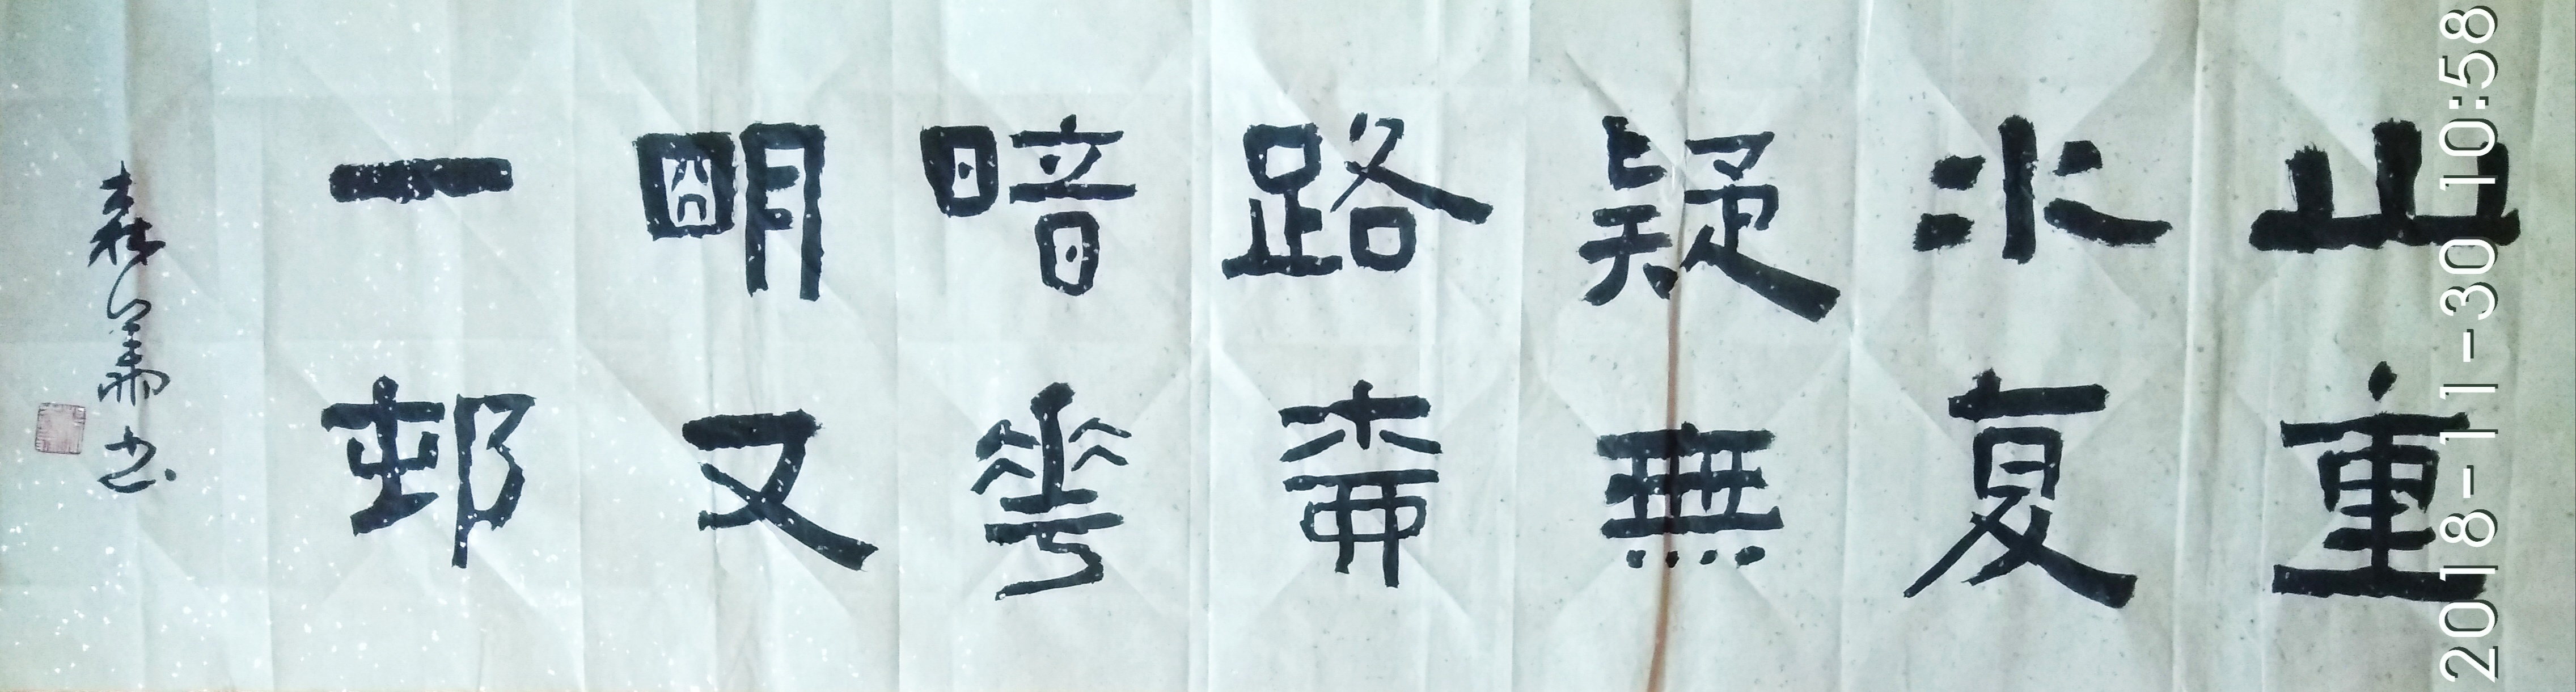 山重
水复
疑無
路柳
暗華
明又
一邨
森 书
2018-11-30 10:58